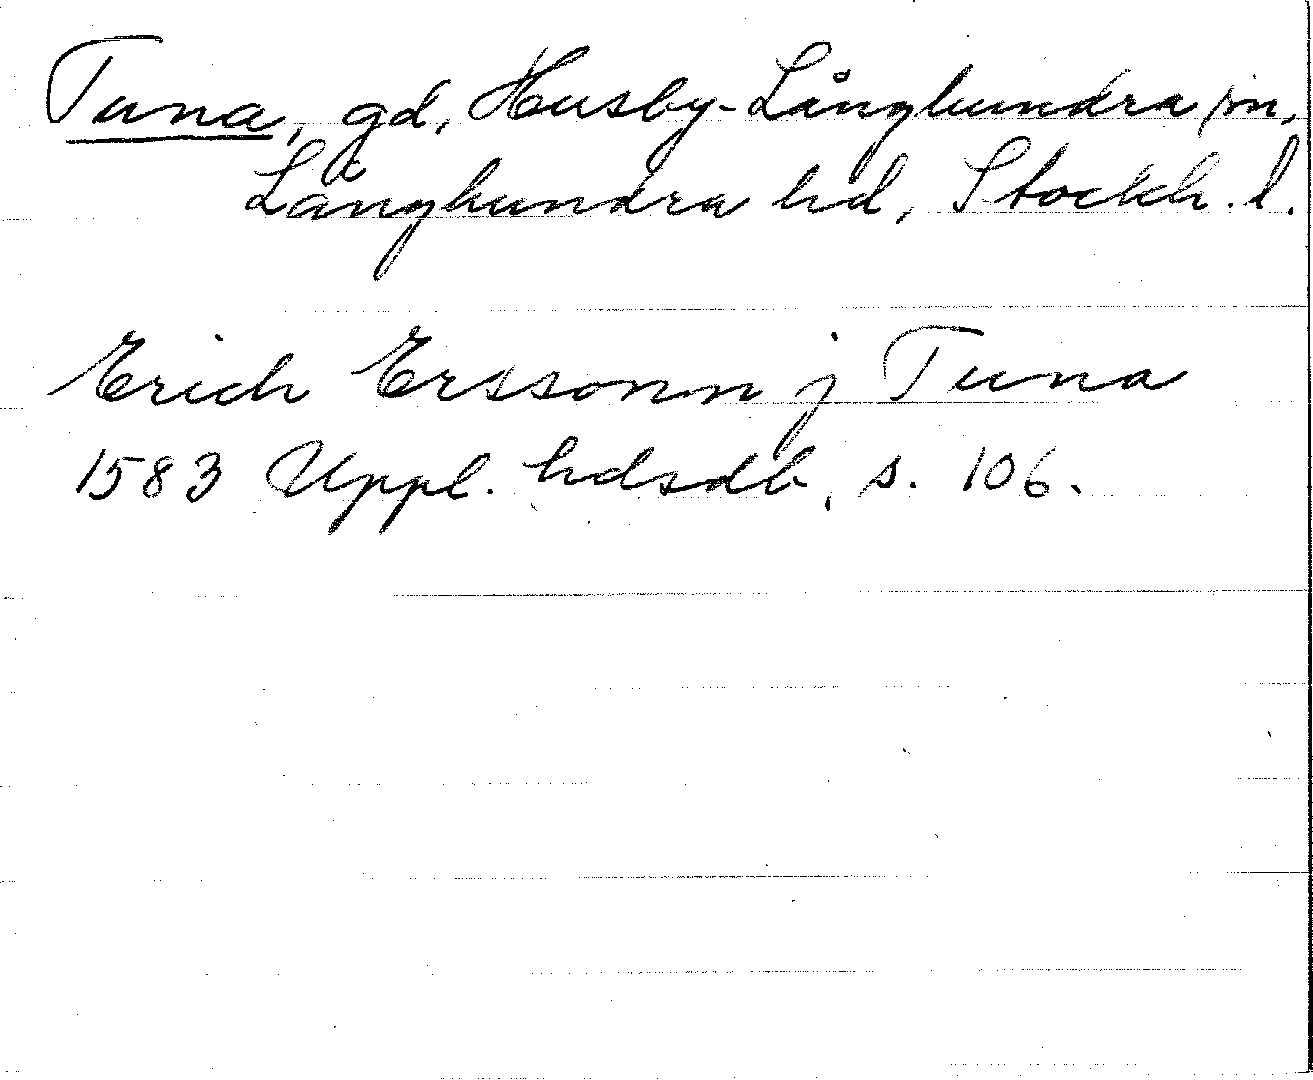 Tuna, gd, Husby-Långhundra sn,
Långhundra hd, Stockh. l.
Erich Erssonn j Tuna
1583 Uppl. hdsdb, s. 106.